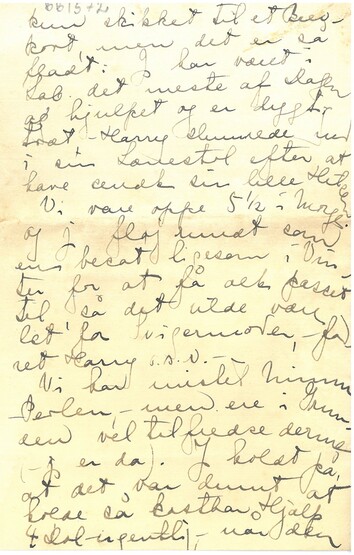 kun skikket til et brev-
kort, men det er så
fladt: J har været i
Lab. det meste af Dagen
og hjulpet og er dygtig
træt – Harry slumrede ind
i sin Lænestol efter at
have sendt sin lille Hilsen
Vi vare oppe 5½ i Morges
og j fløj rundt som
en besat ligesom i Vin-
ter for at få alt passet
til så det vilde være
let for Svigermoder, – få
ret Harry o.s.v. –
Vi har mistet
Perlen, – men ere i Grun-
den vel tilfredse dermed
(– j er da). J holdt på,
at det var dumt at
holde så kostbar Hjælp
4 Dol. – – når den